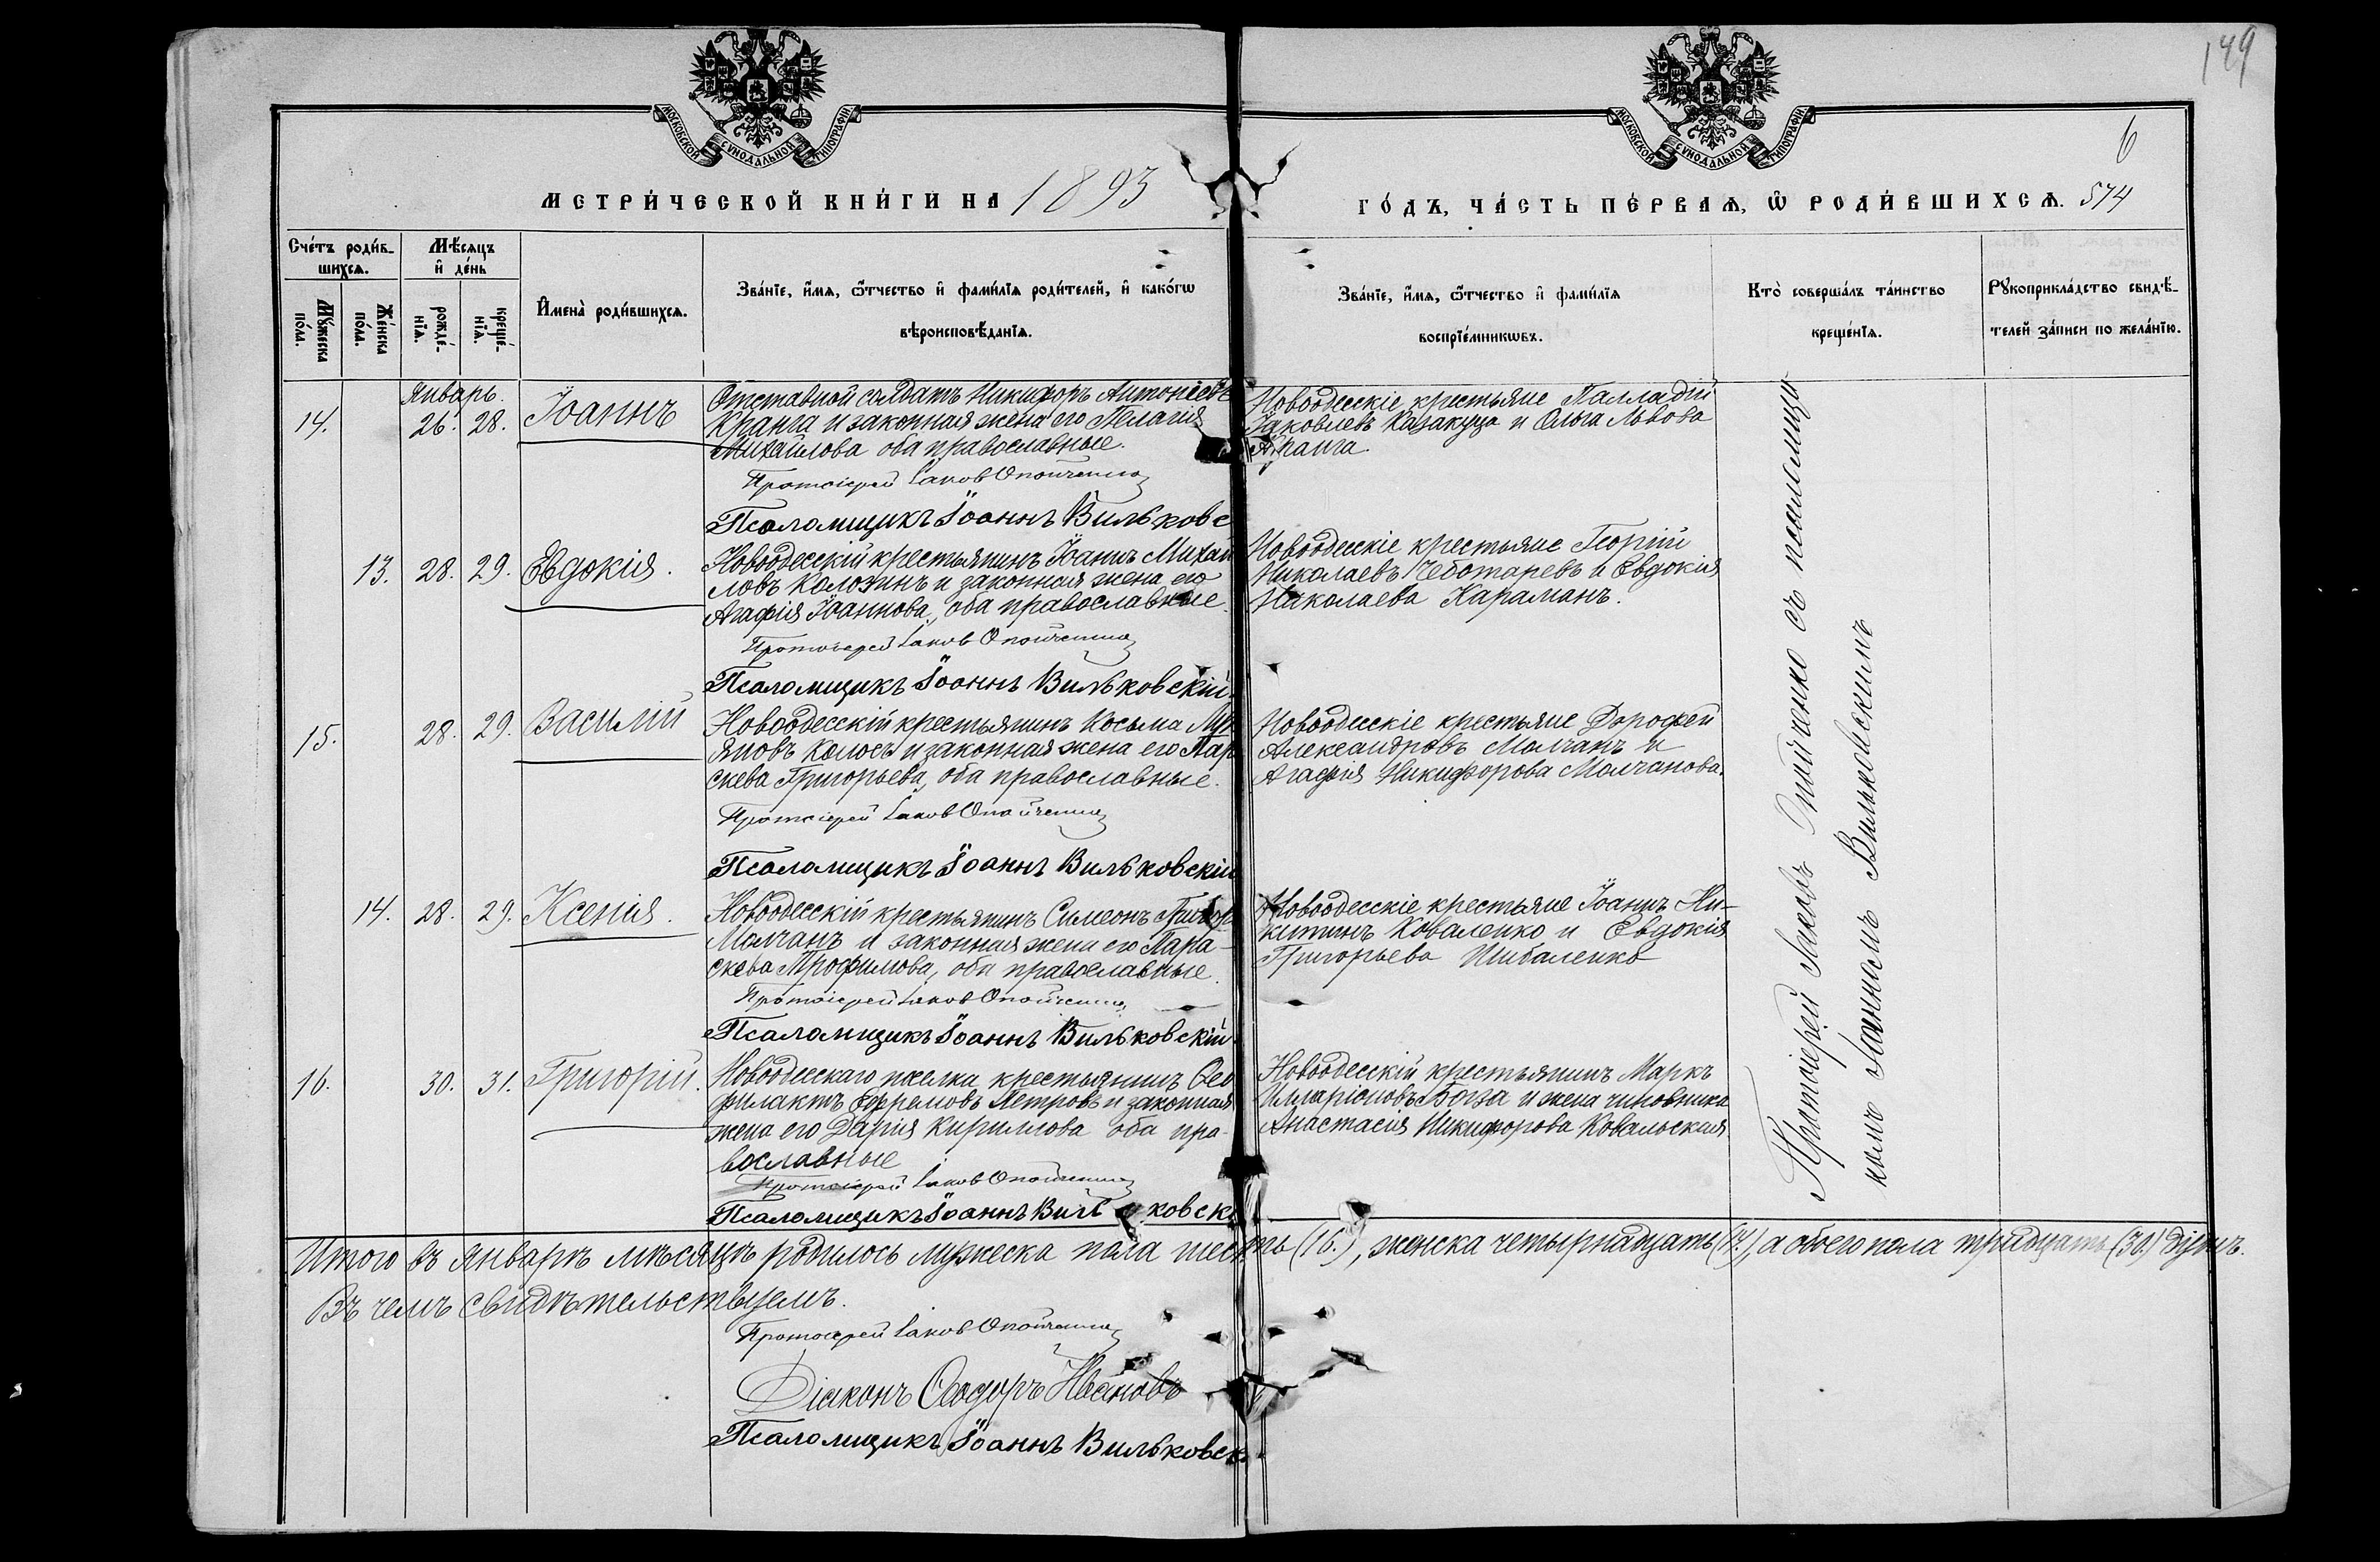 149
6
МОСКОВСКОЙ СѴНОДАЛЬНОЙ ТИПОГРАФІИ
МОСКОВСКОЙ СѴНОДАЛЬНОЙ ТИПОГРАФІИ
МЕТРИ́ЧЕСКОЙ КНИ́ГИ НА 1893
ГО́ДЪ, ЧА́СТЬ ПЕ́РВАѦ, Ѡ РОДИ́ВШИХСѦ. 574
Сче́тъ роди́в-
шихсѧ.
Мѣ́сѧцъ
и҆ де́нь
Мꙋ́жеска
по́ла.
Же́нска
по́ла.
рожде́-
нїѧ.
креще́-
нїѧ.
И҆мена̀ роди́вшихсѧ.
Зва́нїе, и҆́мѧ, ѻ҆́тчество и҆ фами́лїѧ роди́телей, и҆ како́гѡ
вѣроисповѣ́данїѧ.
Зва́нїе, и҆́мѧ, ѻ҆́тчество и҆ фами́лїѧ
воспрїе́мникѡвъ.
Кто̀ соверша́лъ та́инство
креще́нїѧ.
Рꙋкоприкла́дство свидѣ́-
телей за́писи по жела́нїю.
Январь.
14. 26. 28. Іоаннъ
Отставной солдатъ Никифоръ Антоніевъ
Кранга и законная жена его Пелагія
Михайлова оба православные.
Протоіерей Іаковъ Опойченко
Псаломщикъ Іоаннъ Вильковс
Новоодесскіе крестьяне Палладій
Іаковлевъ Казакуца и Ольга Львова
Кранга.
13. 28. 29. Евдокія.
Новоодесскій крестьянинъ Іоаннъ Михай
ловъ Колозинъ и законная жена его
Агафія Іоаннова, оба православные.
Протоіерей Іаковъ Опойченко
Псаломщикъ Іоаннъ Вильковскій.
Новоодесскіе крестьяне Георгій
Николаевъ Чеботаревъ и Евдокія
Николаева Караманъ.
15. 28. 29. Василій
Новоодесскій крестьянинъ Косьма Лук
яновъ Колосъ и законная жена его Пар
скева Григорьева, оба православные.
Протоіерей Іаковъ Опойченко
Псаломщикъ Іоаннъ Вильковскій
Новоодесскіе крестьяне Дорофей
Александровъ Молчанъ и
Агафія Никифорова Молчанова.
14. 28. 29. Ксенія.
Новоодесскій крестьянинъ Симеонъ Григор
Молчанъ и законная жена его Пара-
скева Трофимова, оба православные.
Протоіерей Іаковъ Опойченко
Псаломщикъ Іоаннъ Вильковскій
Новоодесскіе крестьяне Іоаннъ Ни-
китинъ Коваленко и Евдокія
Григорьева Шибаленко
16. 30. 31. Григорій.
Новоодесскаго поселка крестьянинъ Ѳео
филактъ Ефремовъ Петровъ и законная
жена его Дарія Кириллова оба пра-
вославные
Протоіерей Іаковъ Опойченко
Псаломщикъ Іоаннъ Вильковскі
Новоодесскій крестьянинъ Маркъ
Илларіоновъ Богза и жена чиновника
Анастасія Никифорова Ковальская.
Протоіерей Іаковъ Опойченко съ псаломщи
комъ Іоанномъ Вильковскимъ
Итого въ январѣ мѣсяцѣ родилось мужеска пола шесть (16.), женска четырнадцать (14.), а обоего пола тридцать (30.) душъ.
Въ чемъ свидѣтельствуемъ.
Протоіерей Іаковъ Опойченко
Діаконъ Ѳеодоръ Ивановъ
Псаломщикъ Іоаннъ Вильковск